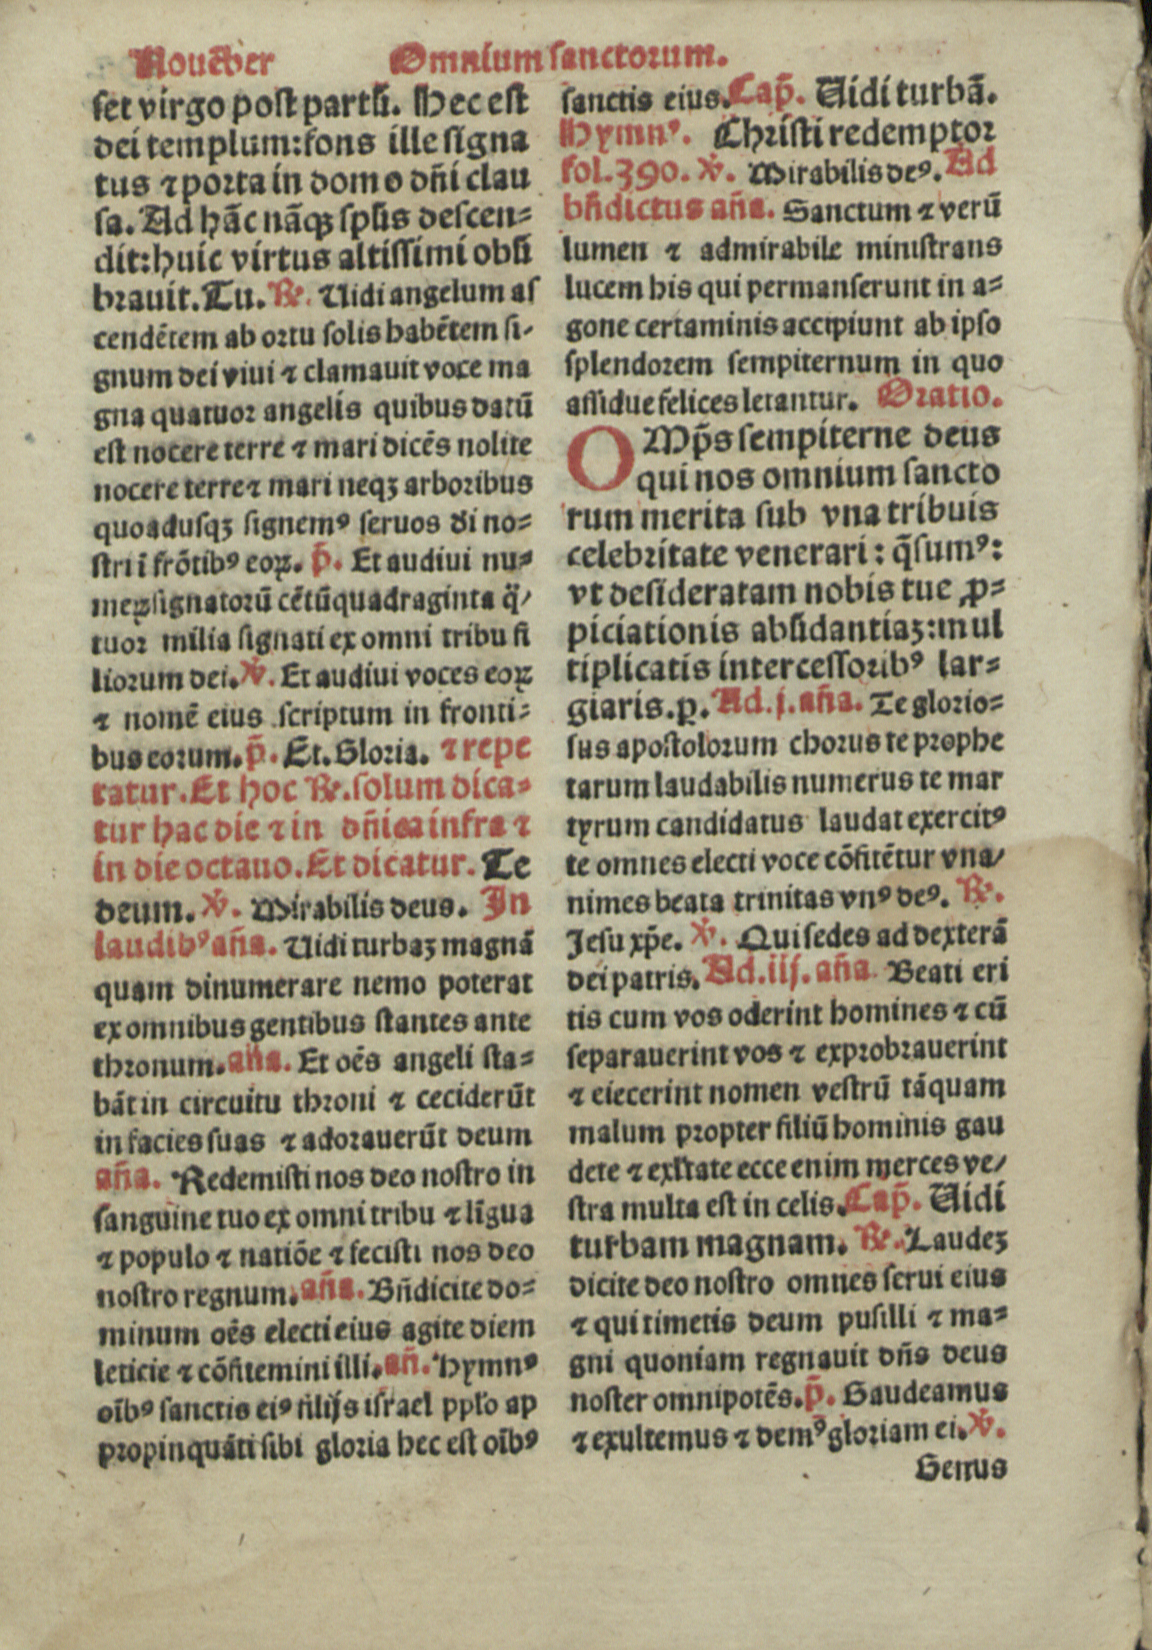 Nouēber Omnium sanctorum.
set virgo post partū. Hec est
dei templum: fons ille signa
tus ⁊ porta in domo dn̄i clau
sa. Ad hāc nāqꝫ sp̄us descen⸗
dit: huic virtus altissimi obū
brauit. Tu. ℟. Uidi angelum as
cendētem ab ortu solis habētem si⸗
gnum dei viui ⁊ clamauit voce ma
gna quatuor angelis quibus datū
est nocere terre ⁊ mari dicēs nolite
nocere terre ⁊ mari neqꝫ arboribus
quoadusqꝫ signemꝰ seruos di no⸗
stri ī frōtibꝰ eoꝝ. p̄. Et audiui nu⸗
meꝝ signatorū cētū quadraginta q̈⸗
tuor milia signati ex omni tribu fi
liorum dei. ℣. Et audiui voces eoꝝ
⁊ nomē eius scriptum in fronti⸗
bus eorum. p̄. Et. Gloria. ⁊ repe
tatur. Et hoc ℟. solum dica⸗
tur hac die ⁊ in dn̄ica infra ⁊
in die octauo. Et dicatur. Te
deum. ℣. Mirabilis deus. In
laudibꝰ an̄a. Uidi turbaꝫ magnā
quam dinumerare nemo poterat
ex omnibus gentibus stantes ante
thronum. an̄a. Et oēs angeli sta⸗
bāt in circuitu throni ⁊ ceciderūt
in facies suas ⁊ adorauerūt deum
an̄a. Redemisti nos deo nostro in
sanguine tuo ex omni tribu ⁊ līgua
⁊ populo ⁊ natiōe ⁊ fecisti nos deo
nostro regnum. an̄a. Bn̄dicite do⸗
minum oēs electi eius agite diem
leticie ⁊ cōfitemini illi. an̄. Hymnꝰ
oībꝰ sanctis eiꝰ filijs israel pplo ap
propinquāti sibi gloria hec est oībꝰ
sanctis eius. Cap̄. Uidi turbā.
Hymnꝰ. Christi redemptor
fol. 390. ℣. Mirabilis deꝰ. Ad
bn̄dictus an̄a. Sanctum ⁊ verū
lumen ⁊ admirabile ministrans
lucem his qui permanserunt in a⸗
gone certaminis accipiunt ab ipso
splendorem sempiternum in quo
assidue felices letantur. Oratio.
OMp̄s sempiterne deus
qui nos omnium sancto
rum merita sub vna tribuis
celebritate venerari: q̄sumꝰ:
vt desideratam nobis tue ꝓ⸗
piciationis abūdantiaꝫ: mul
tiplicatis intercessoribꝰ lar⸗
giaris. ꝑ. Ad. j. an̄a. Te glorio⸗
sus apostolorum chorus te prophe
tarum laudabilis numerus te mar
tyrum candidatus laudat exercitꝰ
te omnes electi voce cōfitētur vna⸗
nimes beata trinitas vnꝰ deꝰ. ℟.
Jesu xp̄e. ℣. Qui sedes ad dexterā
dei patris. Ad. iij. an̄a. Beati eri
tis cum vos oderint homines ⁊ cū
separauerint vos ⁊ exprobrauerint
⁊ eiecerint nomen vestrū tāquam
malum propter filiū hominis gau
dete ⁊ exltate ecce enim merces ve⸗
stra multa est in celis. Cap̄. Uidi
turbam magnam. ℟. Laudeꝫ
dicite deo nostro omnes serui eius
⁊ qui timetis deum pusilli ⁊ ma⸗
gni quoniam regnauit dn̄s deus
noster omnipotēs. p̄. Gaudeamus
⁊ exultemus ⁊ demꝰ gloriam ei. ℣.
Genus